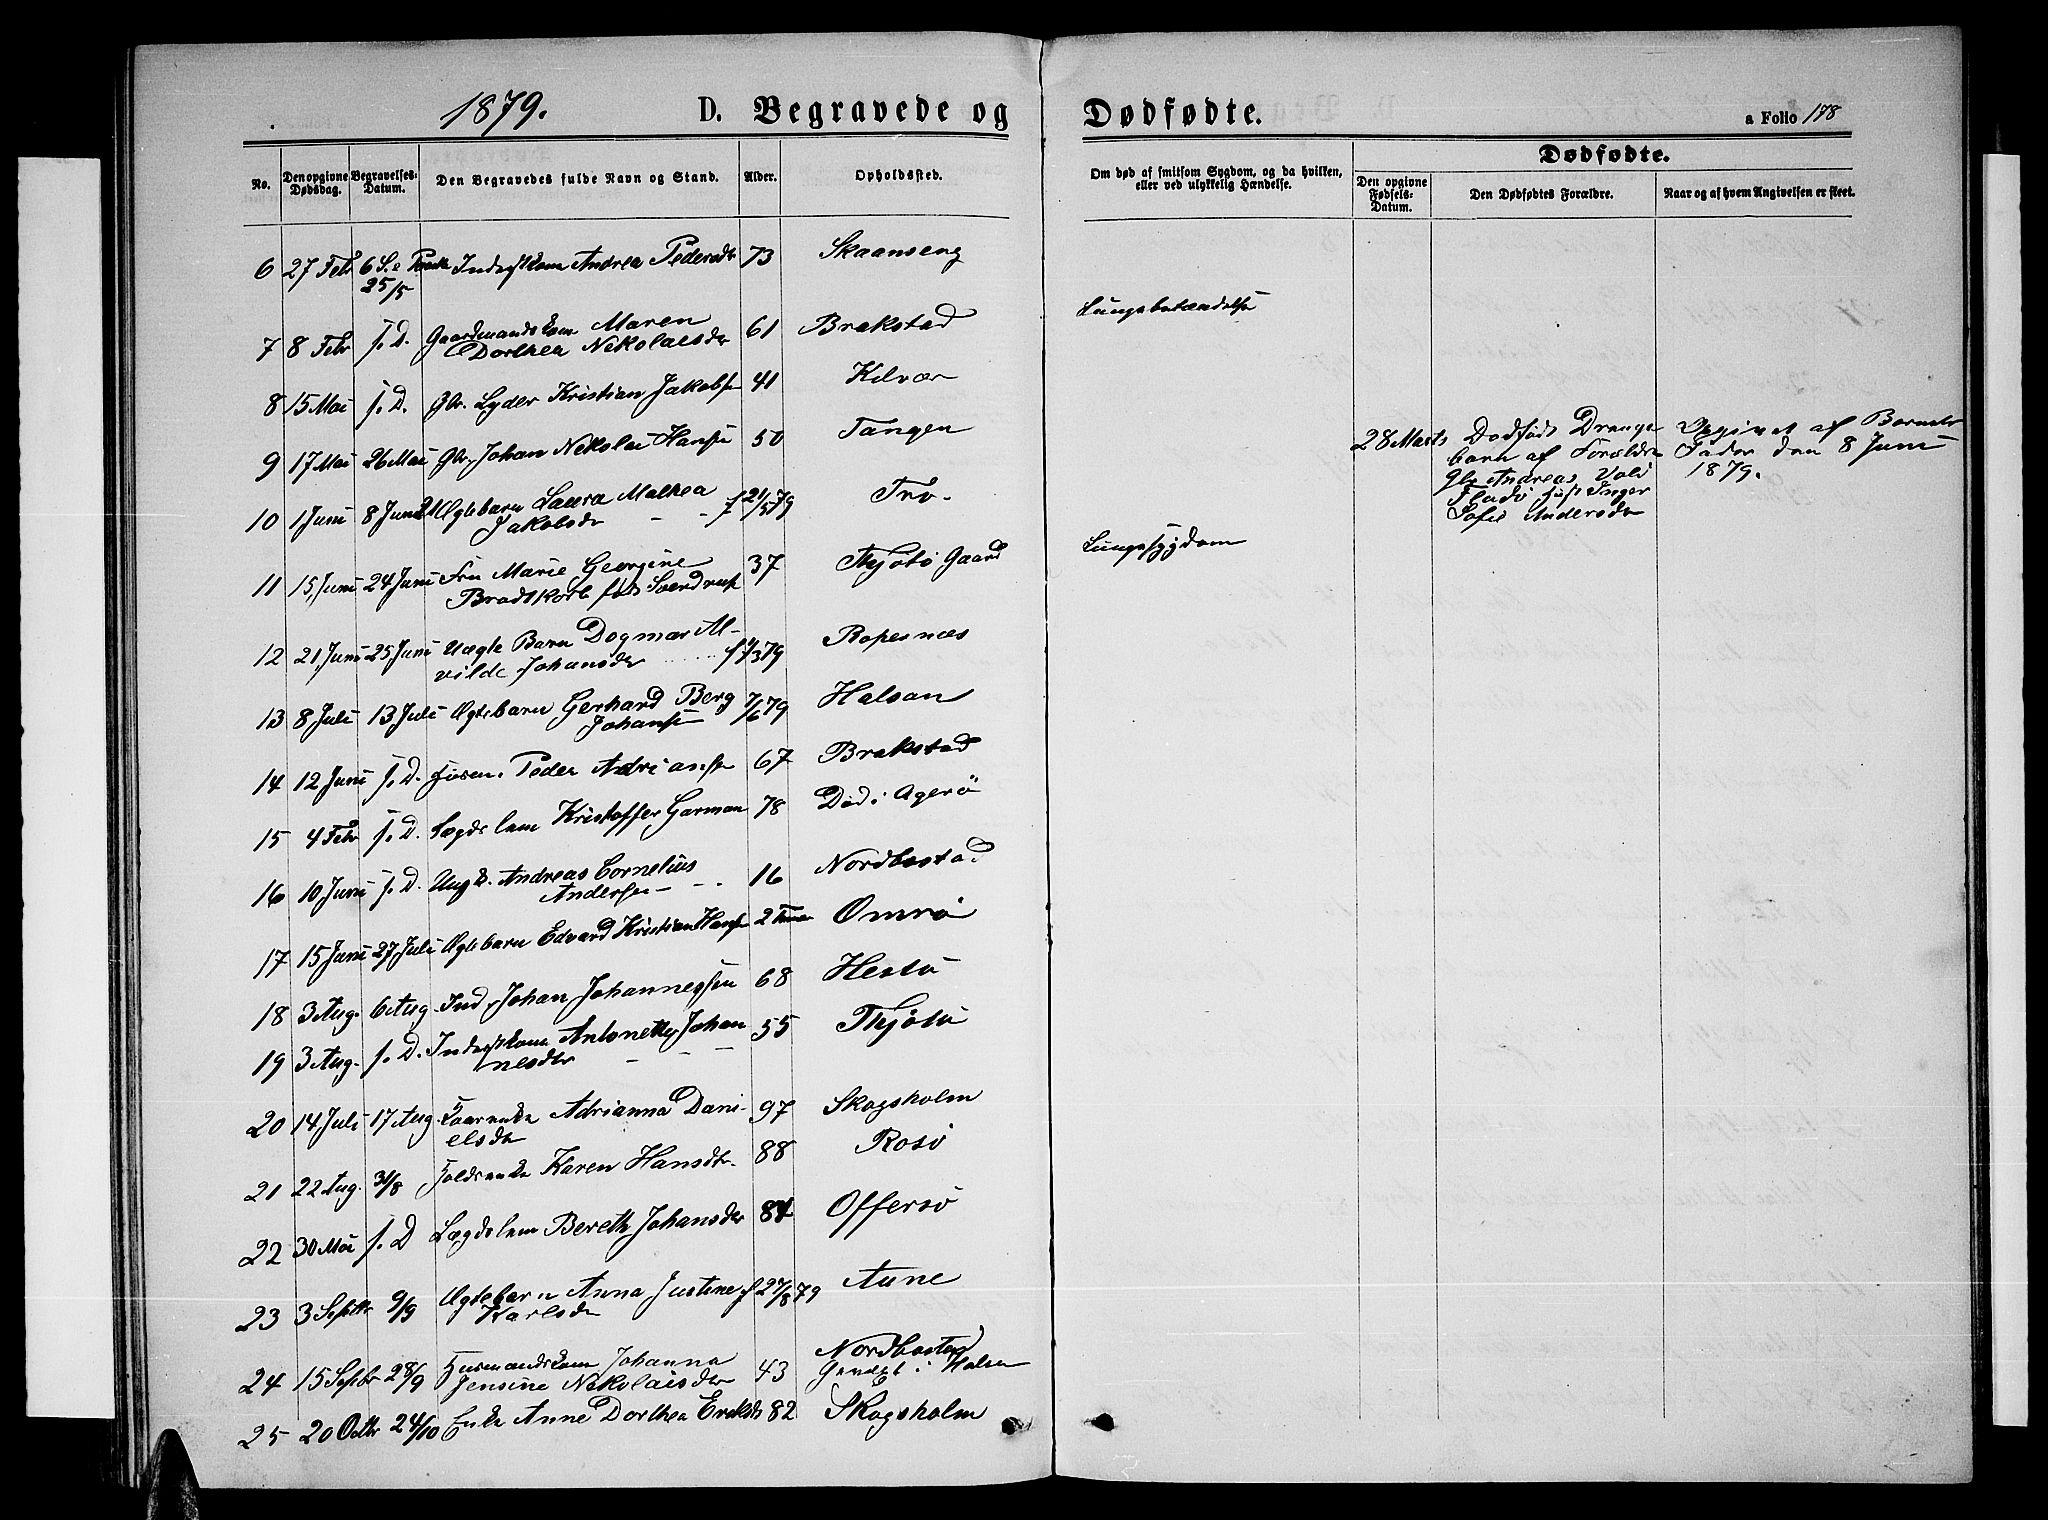 1879. D. Begravede og Dødfødte. a Folio 178
No. Den opgivne Dødsdag. Begravelses-Datum. Den Begravedes fulde Navn og Stand. Alder. Opholdssted. Om død af smitsom Sygdom, og da hvilken, eller ved ulykkelig Hændelse. Dødfødte.
Den opgivne Fødsels-Datum. Den Dødfødtes Forældre. Naar og af hvem Angivelsen er skeet.
6 27 Febr 6 S. e Paaske Inderstkone Andrea Pedersdtr 73 Skaanseng
25/5
7 8 Febr s. D. Gaardmandskone Maren 61 Brakstad Lungebetændelse
Dorthea Nikolaisdtr
8 15 Mai s. D. Gbr. Lyder Kristian Jakobsen 41 Kilvær
9 17 Mai 26 Mai Gbr. Johan Nikolai Hansen 50 Tangen
28 Marts Dødfødt Drenge
barn af Forældre
Gbr Andreas Vold
Flado Inger
Sofie Andersdtr
Opgivet af Barnets
Fader den 8 Juni
1879.
10 1 Juni 8 Juni Ægtebarn Laura Malhea f 21/5 79 Tro.
Jakobsdr - -
11 15 Juni 24 Juni Fru Marie Georgine 37 Thjøtø Gaard Lungesygdom
Brodtkorb født Sverdrup
12 21 Juni 25 Juni Uægte Barn Dogmar Al- Ropesnæs
vilde Johansdtr
13 8 Juli 13 Juli Ægtebarn Gerhard Berg 7/6 79 Halsan
Johansen
14 12 Juni s. D. Peder Adriansen 67 Brakstad
15 4 Febr s. D. Lægdslem Kristoffer Garman 78 Død i Agerø
16 10 Juni s. D. Ungk. Andreas Cornelius 16 Nordbostad
Andersen - -
17 15 Juni 27 Juli Ægtebarn Edvard Kristian Hansen 2 Timer Omrø
18 3 Aug. 6 Aug Ind. Johan Johannessen 68 Hestø
19 3 Aug. s. D. Inderstkone Antonette Johan 55 Thjøtø
nesdtr - - -
20 14 Juli 17 Aug Kaarenke Adrianna Dani- 97 Skogsholm
elsdtr
21 22 Aug. 31/8 Foldsenke Karen Hansdtr. 88 Rosø
22 30 Mai s. D Lægdslem Bereth Johansdtr 84 Offersø
23 3 Septbr 9/9 Ægtebarn Anna Justine f 27/8 79 Aune
Karlsdtr
24 15 Septbr 28/9 Husmandskone Johanna 43 Nordbostad
Jensine Nikolaisdtr i Halsan
25 20 Octbr 24/10 Enke Anne Dorthea Eriksdtr 82 Skogsholm